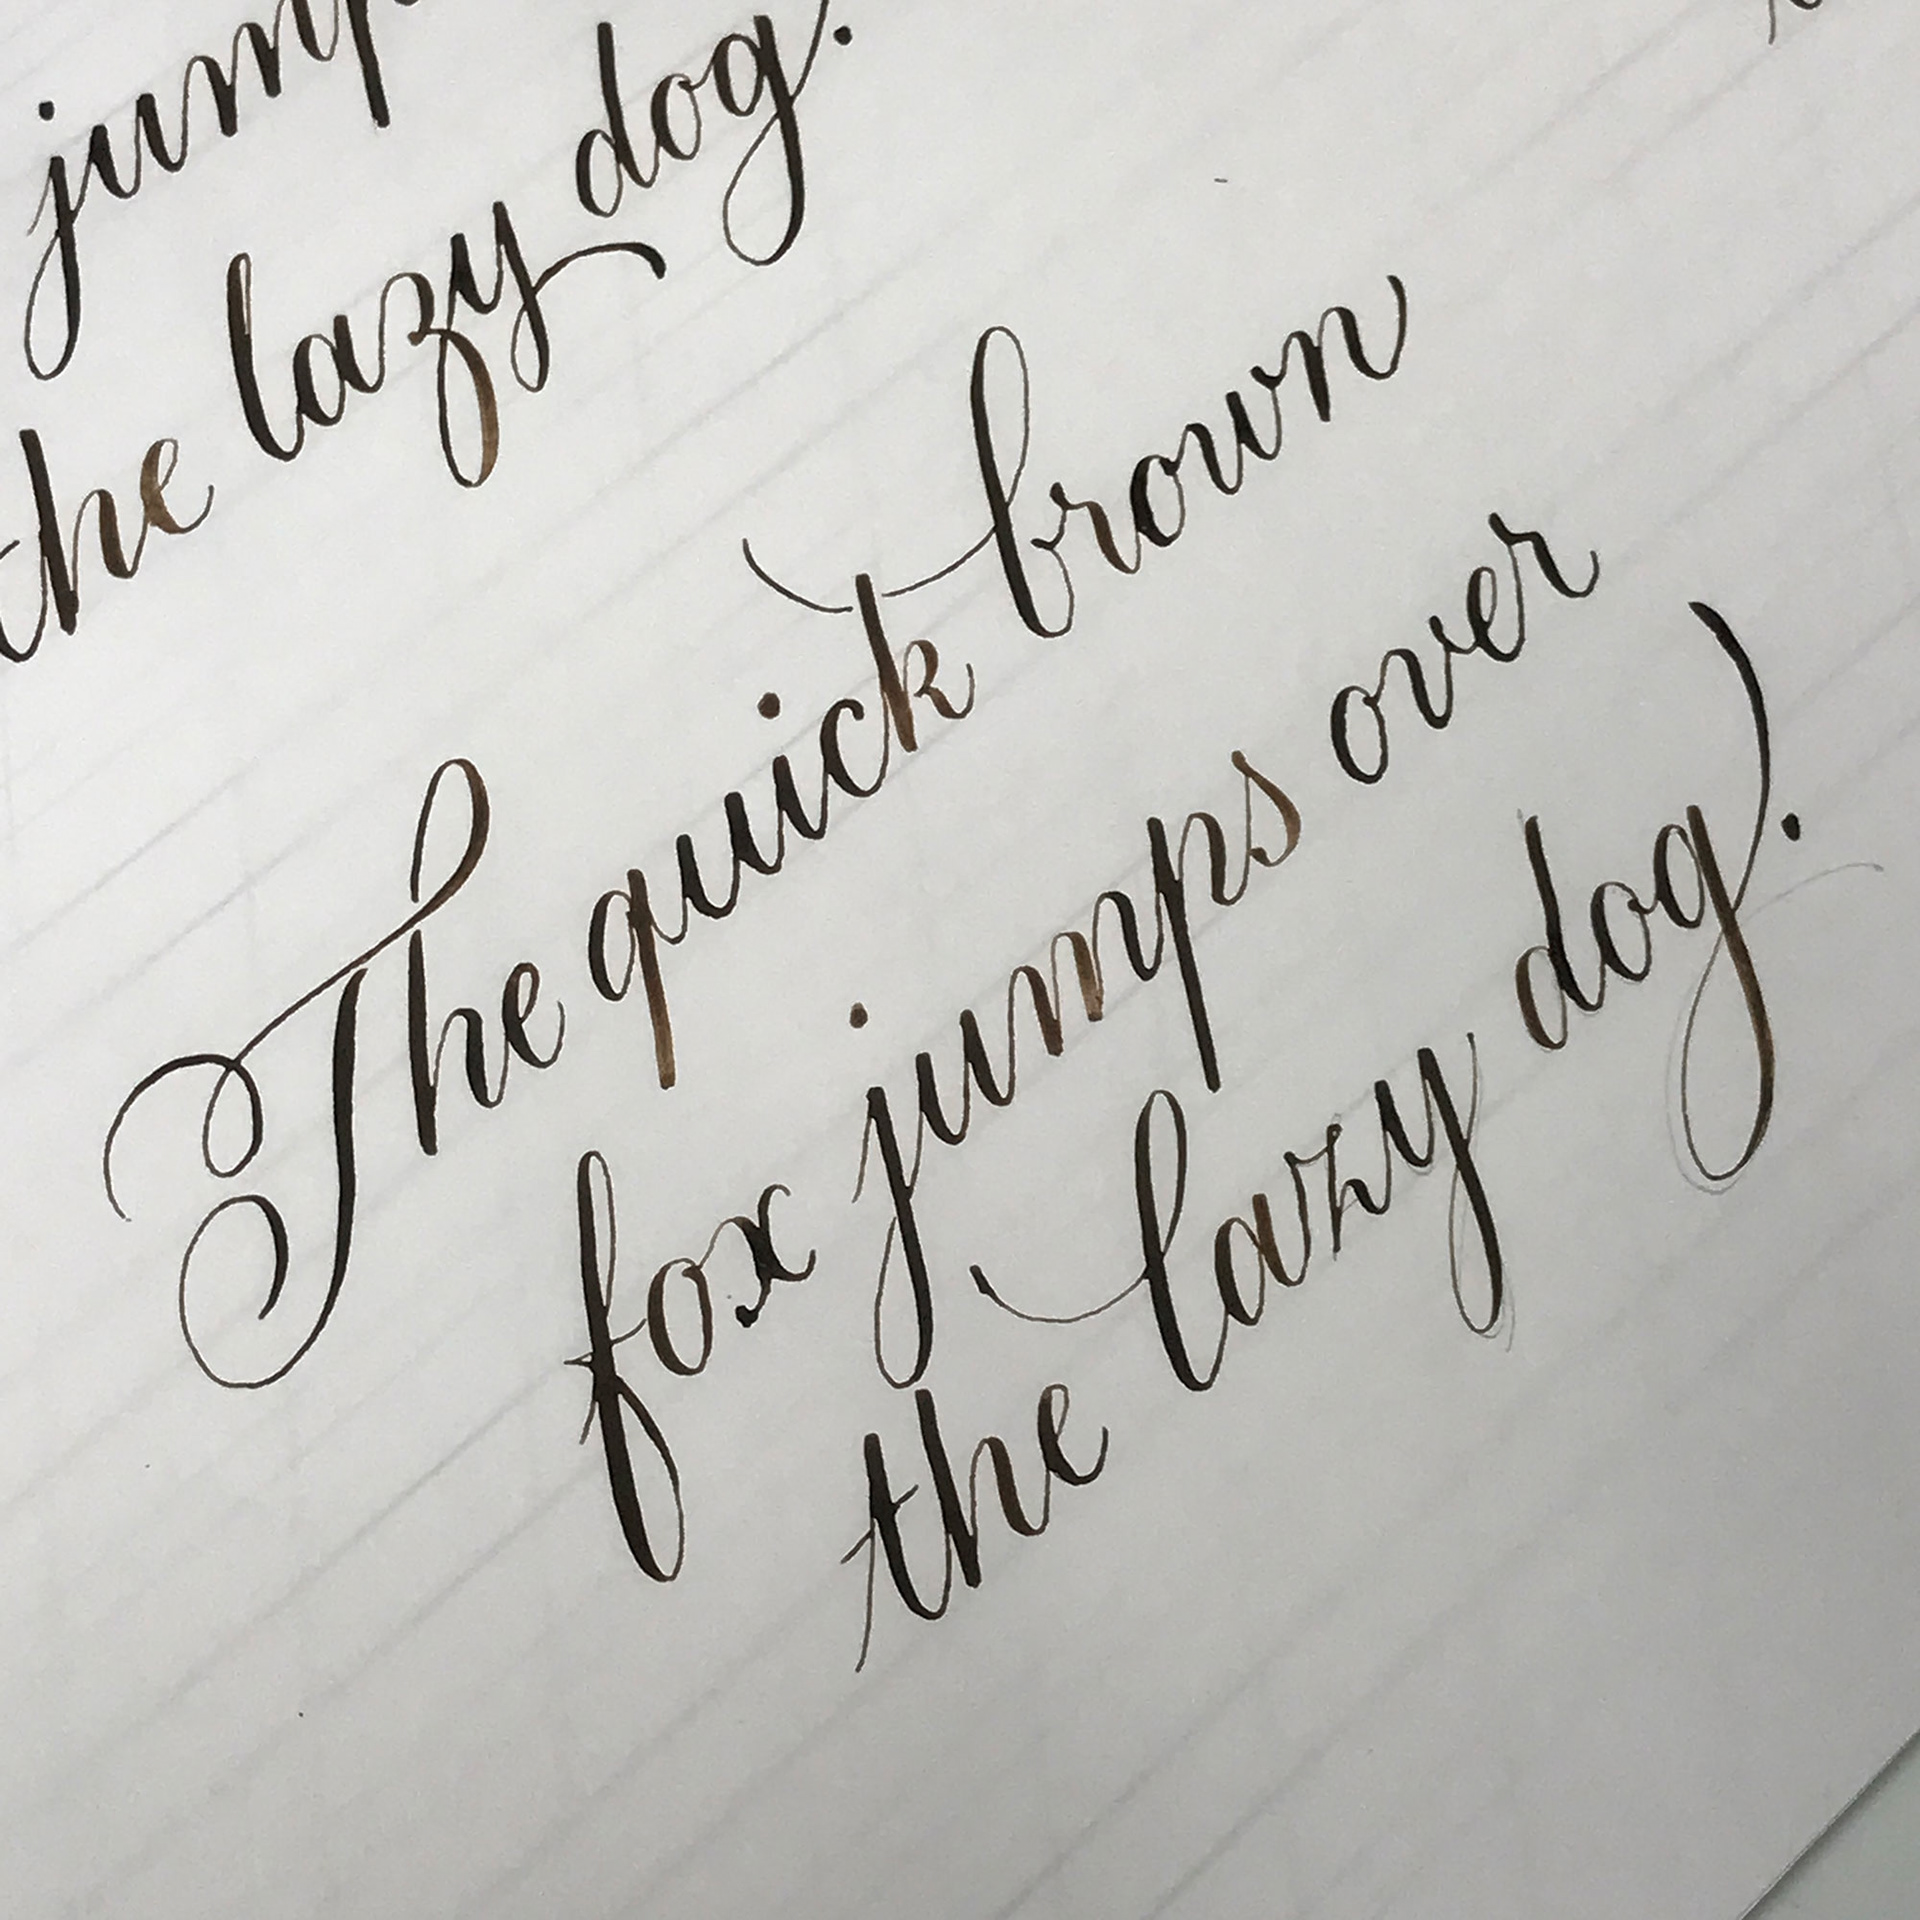 jump
the lazy dog.
The quick brown
fox jumps over
the lazy dog.